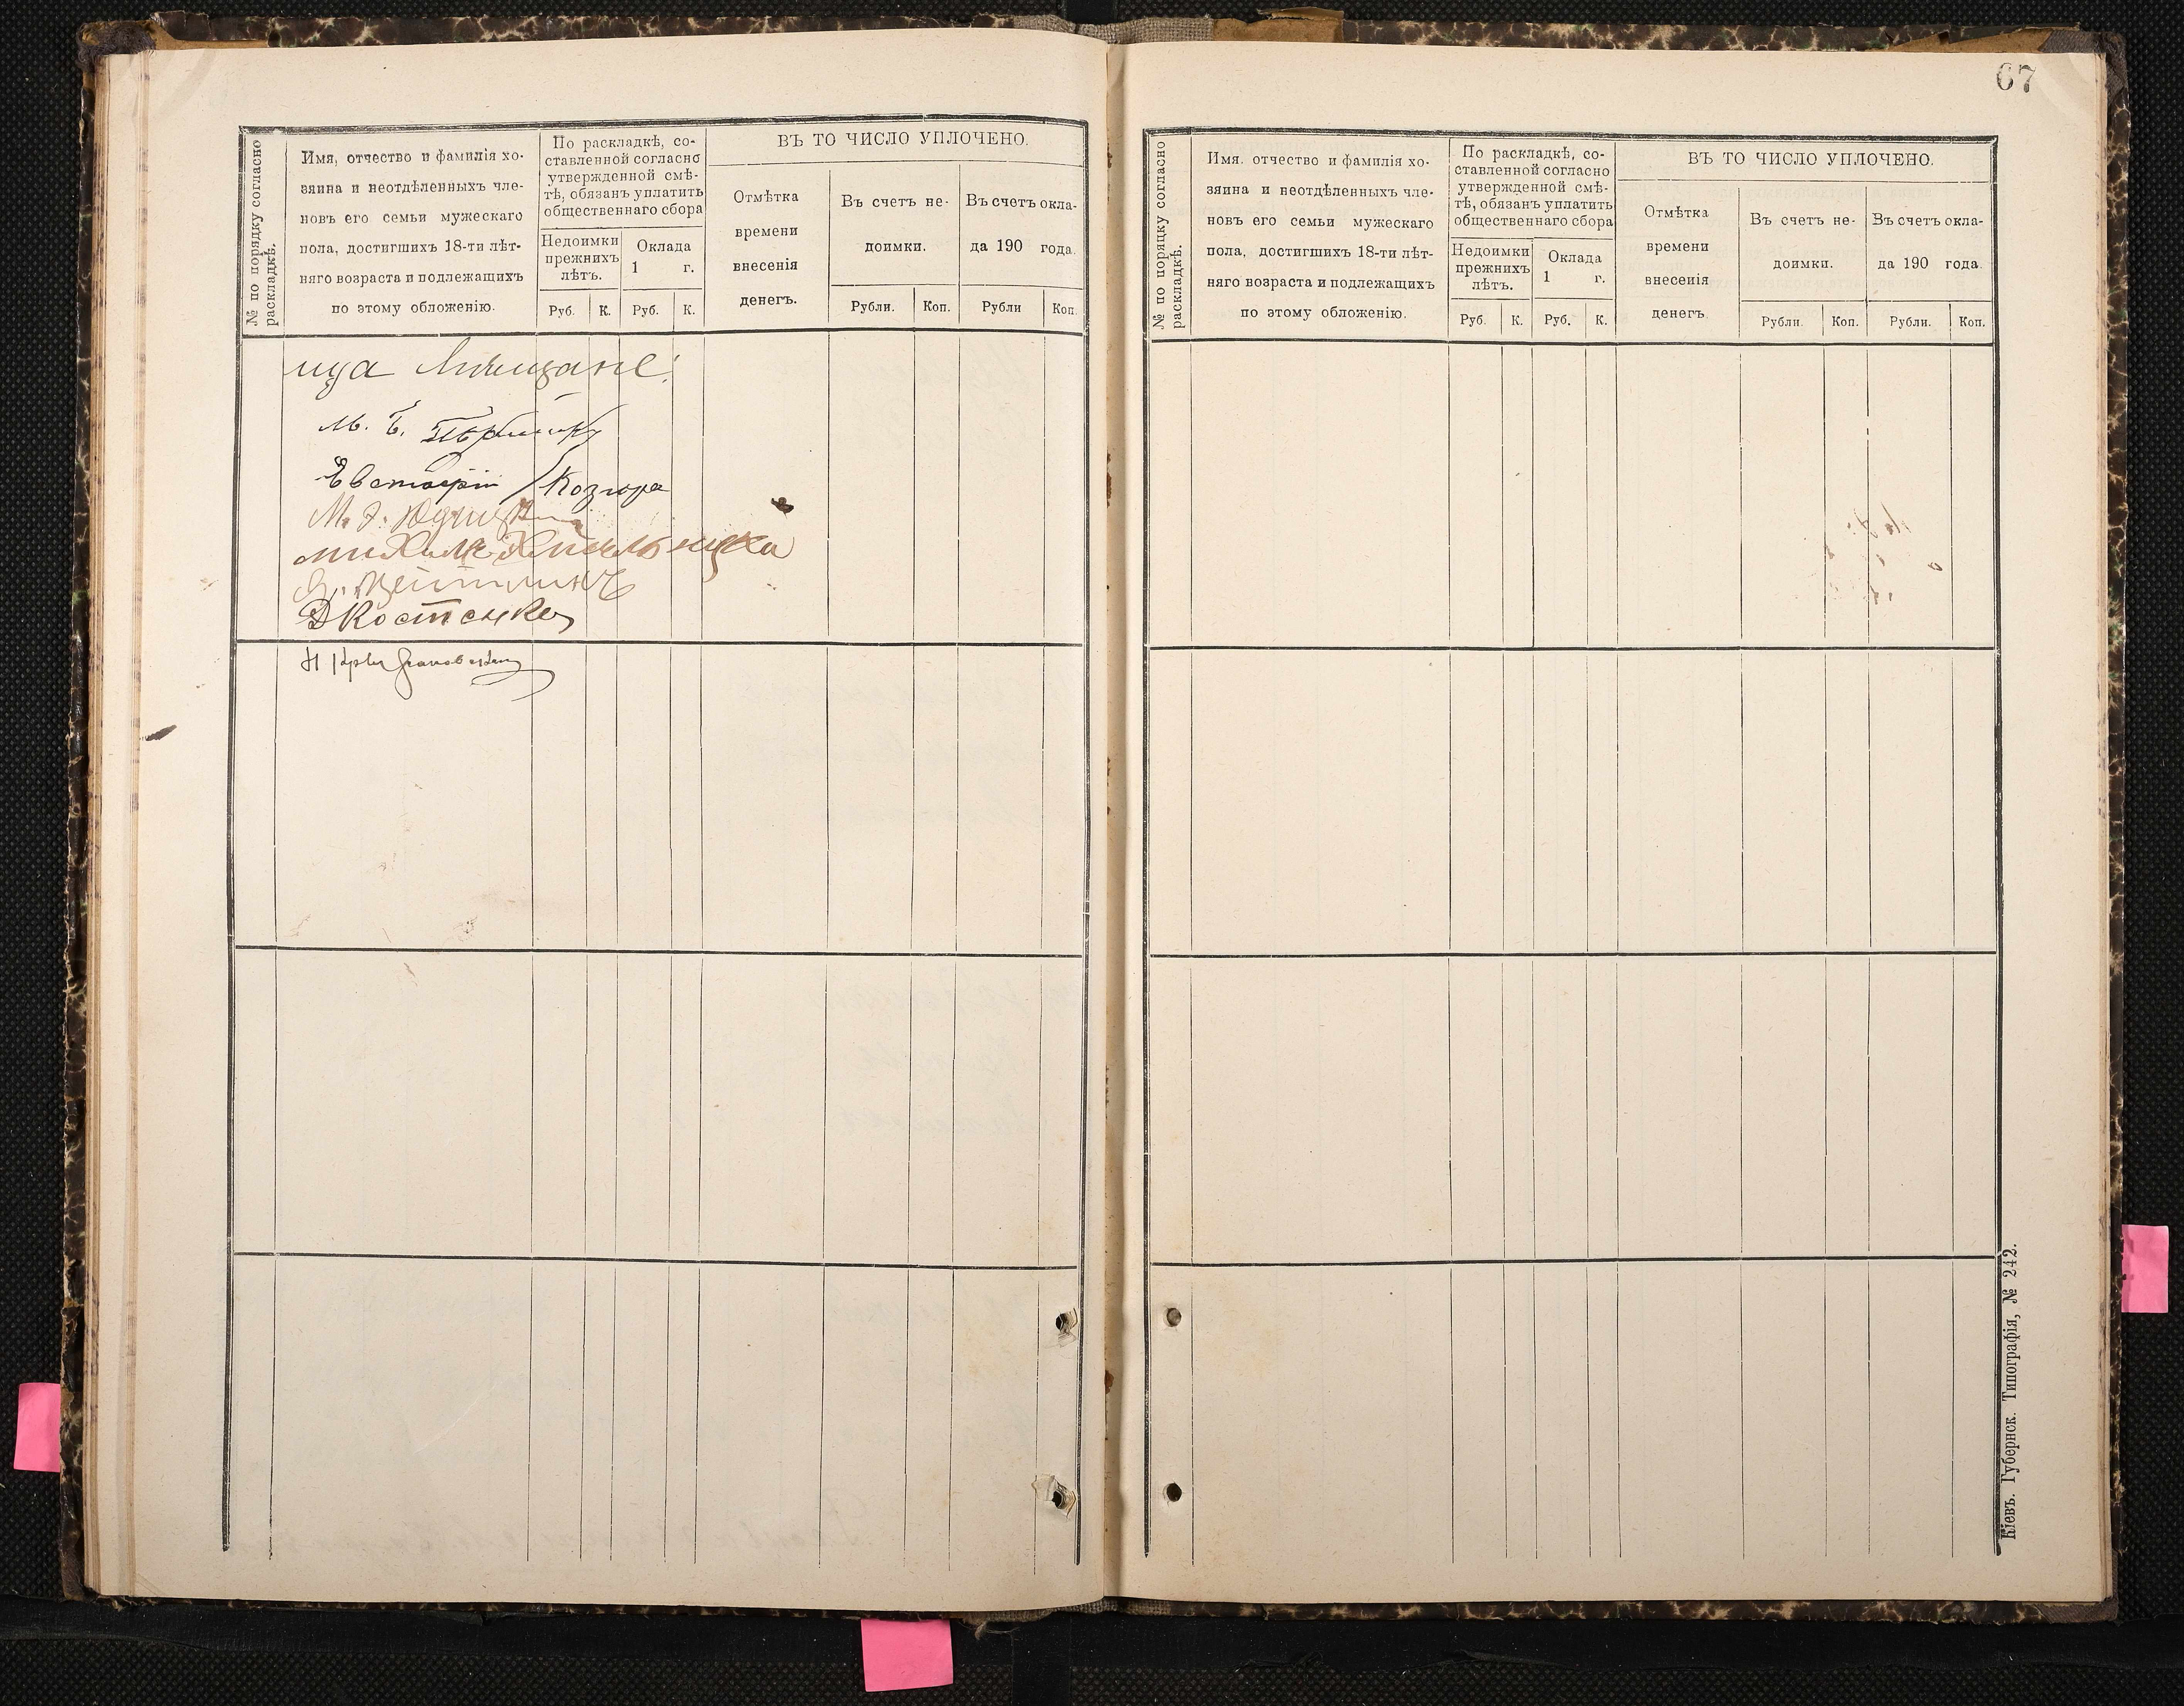 67
№ по порядку согласно
раскладкѣ.
Имя, отчество и фамилія хо-
зяина и неотдѣленныхъ чле-
новъ его семьи мужескаго
пола, достигшихъ 18-ти лѣт-
няго возраста и подлежащихъ
по этому обложенію.
По раскладкѣ, со-
ставленной согласно
утвержденной смѣ-
тѣ, обязанъ уплатить
общественнаго сбора
Недоимки
прежнихъ
лѣтъ.
Оклада
1 г.
Руб. К. Руб. К.
ВЪ ТО ЧИСЛО УПЛОЧЕНО.
Отмѣтка
времени
внесенія
денегъ.
Въ счетъ не-
доимки.
Въ счетъ окла-
да 190 года.
Рубли. Коп. Рубли Коп.
ица Мѣщане:
М. Б.
Евстафій Козюра
М. Э.
Михаил Хмельницка
Д Костенко
Н
№ по порядку согласно
раскладкѣ.
Имя. отчество и фамилія хо-
зяина и неотдѣленныхъ чле-
новъ его семьи мужескаго
пола, достигшихъ 18-ти лѣт-
няго возраста и подлежащихъ
по этому обложенію.
По раскладкѣ, со-
ставленной согласно
утвержденной смѣ-
тѣ, обязанъ уплатить
общественнаго сбора
Недоимки
прежнихъ
лѣтъ.
Оклада
1 г.
Руб. К. Руб. К.
ВЪ ТО ЧИСЛО УПЛОЧЕНО.
Отмѣтка
времени
внесенія
денегъ
Въ счетъ не-
доимки.
Въ счетъ окла-
да 190 года.
Рубли. Коп. Рубли. Коп.
Кіевъ. Губернск. Типографія, № 242.